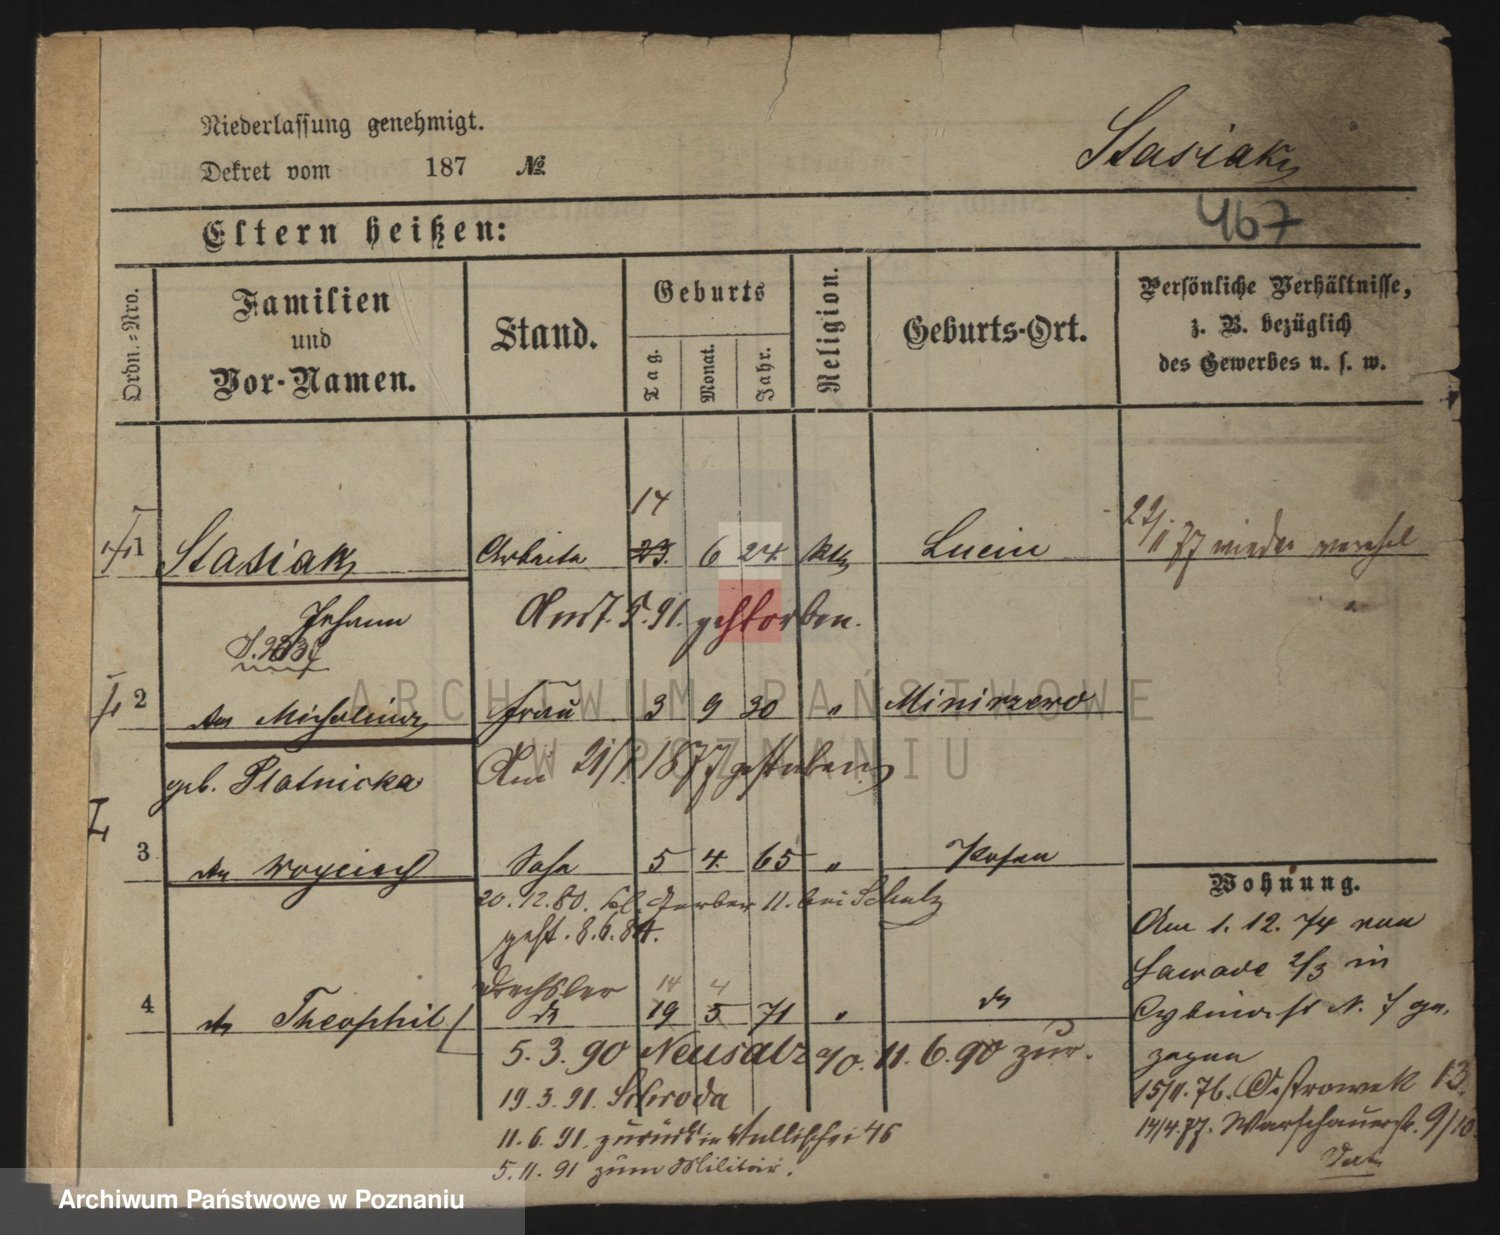 Niederlassung genehmigt.
Dekret vom 187 №
Stasiak
467
Eltern heißen:
Ordn.-Nro.
Familien
und
Vor-Namen.
Stand.
Geburts
Tag.
Monat.
Jahr.
Religion.
Geburts-Ort.
Persönliche Verhältnisse,
z. B. bezüglich
des Gewerbes u. s. w.
14
1 Stasiak Arbeiter 23. 6 24 kth Lucin
77 wieder
Johann
Am 7. 5. 91. gestorben.
2 Frau 3 9 30 "
geb. Platnicka
Am 21/1. 1877 gestorben
3 Sohn 5 4. 65 " Posen
Wohnung.
20. 12. 80. Gerber 11. bei Schulz
gest. 8. 6. 84.
Am 1. 12. 74 von
2/3 in
Drechsler 14 4
4 Theophil 19 5 71 "
N. 7 ge-
zogen
5. 3. 90 Neusalz a/O. 11. 6. 90 zur.
15/11. 76. Ostrowek 13.
19. 3. 91. Schroda
14/4. 77. Warschauerstr. 9/10
11. 6. 91. zurück 46
5. 11. 91 zum Militair.
ARCHIWUM PAŃSTWOWE
W POZNANIU
Archiwum Państwowe w Poznaniu